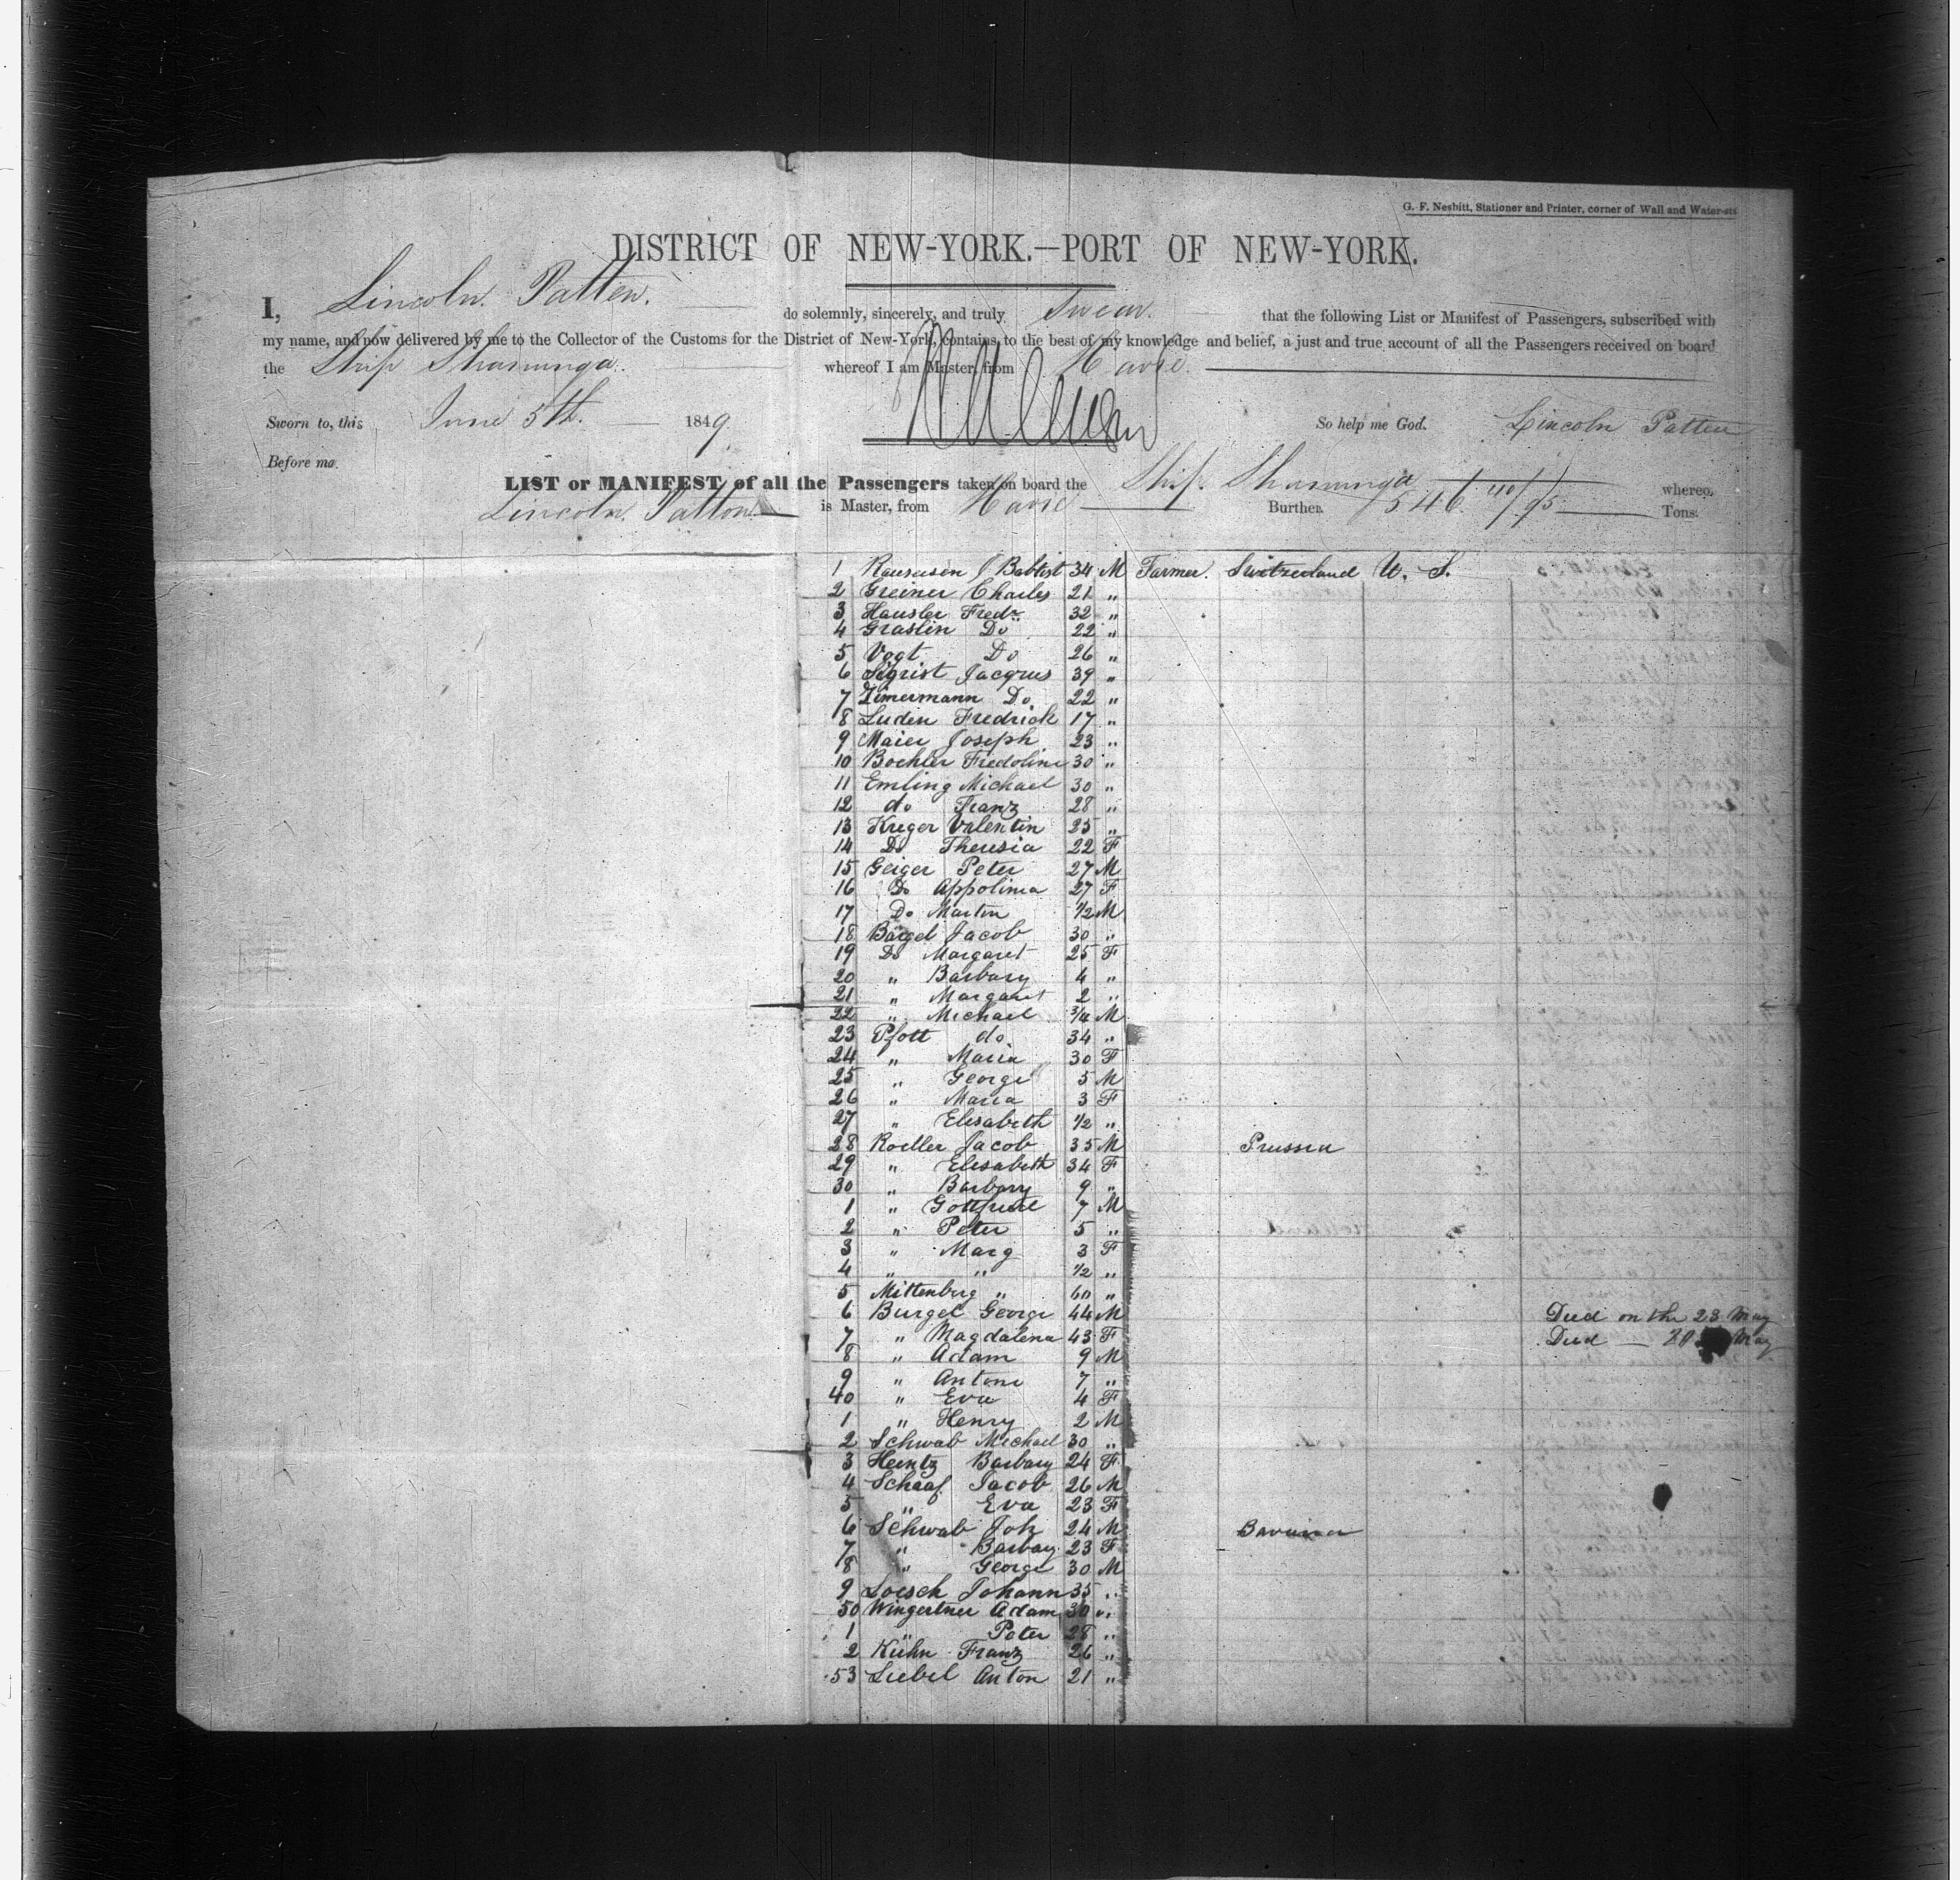 G. F. Nesbitt, Stationer and Printer, corner of Wall and Water-sts
DISTRICT OF NEW-YORK.—PORT OF NEW-YORK.
I, Lincoln Patten. do solemnly, sincerely, and truly Swear that the following List or Manifest of Passengers, subscribed with
my name, and now delivered by me to the Collector of the Customs for the District of New-York, contains, to the best of my knowledge and belief, a just and true account of all the Passengers received on board
the Ship Shanunga. whereof I am Master, from Havre.
Sworn to, this June 5th. 1849 So help me God. Lincoln Patten
Before me.
LIST or MANIFEST of all the Passengers taken on board the Ship Shanunga whereof
Lincoln Patton is Master, from Havre Burthen 546 40/95 Tons.
1 J Babtist 34 M Farmer. Switzerland U. S.
2 Greiner Charles 21 "
3 Hausler Fredr. 32 "
4 Graslin Do 22 "
5 Vogt Do 26 "
6 Sigrist Jacques 39 "
7 Zimermann Do 22 "
8 Luden Fredrick 17 "
9 Maier Joseph 23 "
10 Boehler Fredoline 30 "
11 Emling Michael 30 "
12 do Franz 28 "
13 Kreger Valentin 25 "
14 Do Theresia 22 F
15 Geiger Peter 27 M
16 Do Appolinia 27 F
17 Do Martin 1/2 M
18 Bargel Jacob 30 "
19 Do Margaret 25 F
20 " Barbary 4 "
21 " Margaret 2 "
22 " Michael 3/4 M
23 Pfott do 34 "
24 " Maria 30 F
25 " George 5 M
26 " Maria 3 F
27 " Elisabeth 1/2 "
28 Roeller Jacob 35 M Prussia
29 " Elisabeth 34 F
30 " Barbary 9 "
1 " Gottfried 7 M
2 " Peter 5 "
3 " Marg 3 F
4 " " 1/2 "
5 Mittenberg " 60 "
6 Burgel George 44 M Died on the 23 May
7 " Magdalena 43 F Died — May
8 " Adam 9 M
9 " Antone 7 "
40 " Eva 4 F
1 " Henry 2 M
2 Schwab Michael 30 "
3 Heintz Barbary 24 F
4 Schaaf Jacob 26 M
5 " Eva 23 F
6 Schwab Joh 24 M Bavaria
7 " Barbay 23 F
8 " George 30 M
9 Loesch Johann 35 "
50 Wingertner Adam 30 "
1 " Peter 28 "
2 Kuhn Franz 26 "
53 Liebel Anton 21 "